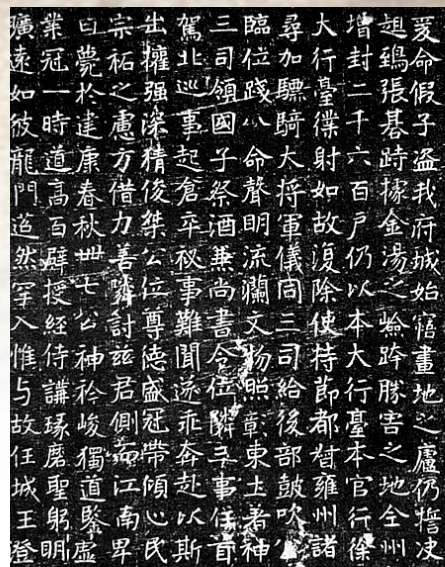 爰命假子盜我府城始宿畫地之廬仍誓決
趄鵄張碁跱據金湯之險跨勝害之地仝州
增封二千六百戶仍以本大行臺本官行徐
大行臺僕射如故復除使持節都督雍州諸
尋加驃騎大將軍儀同三司給後部鼓吹公
臨位踐八命聲明流瀾文物照彰東土耆神
三司領國子祭酒兼尚書令位隣三事任首
駕北巡事起倉卒祕事難聞遂乖奔赴以斯
出擁强深精後桀公位尊德盛冠帶傾心民
宗祏之慮方借力善隣討茲君側而江南卑
日薨於建康春秋卅七公神衿峻獨道鑒虛
業冠一時道高百辟授經侍講琢磨聖躬明
曠遠如彼龍門邈然罕入惟与故任城王澄